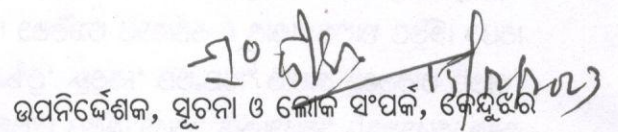 ଉପନିର୍ଦ୍ଦେଶକ, ସୂଚନା ଓ ଲୋକ ସଂପର୍କ, କେନ୍ଦୁଝର